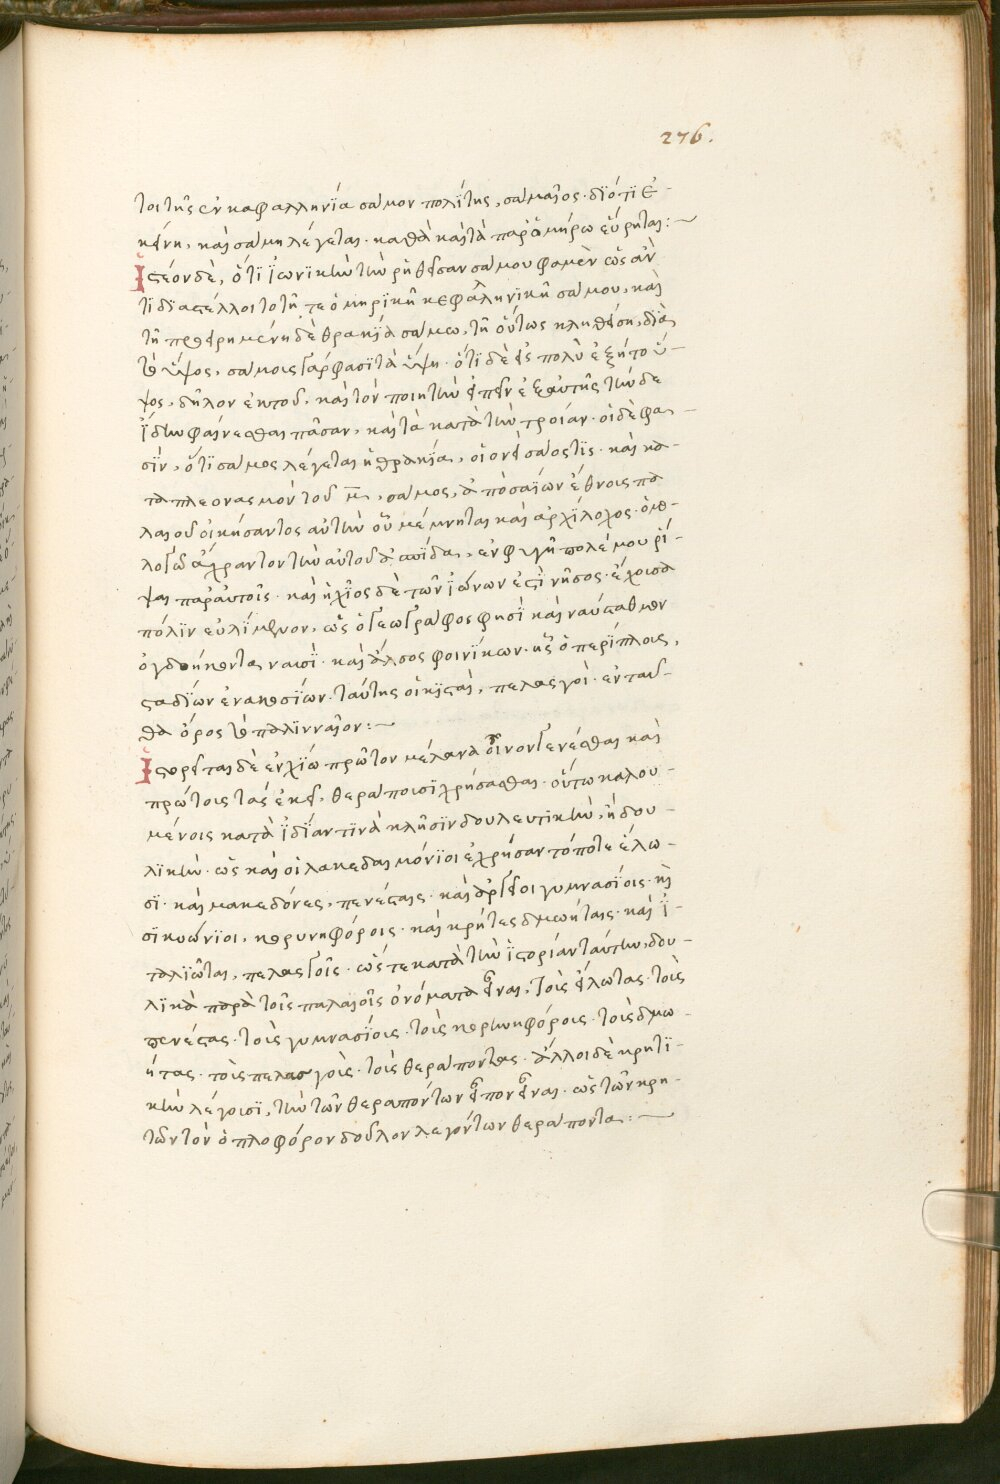 276.
τοι τῆς ἐν καφαλληνία σάμου πολίτης, σαμαῖος· διότι ἐ-
κείνη, καὶ σάμη λέγεται· καθὰ καὶ τὰ παρ' ὁμήρω εὕρηται:~
Ἰστέον δὲ, ὅτι ἰωνικὴν τὴν ῥηθεῖσαν σάμον φαμὲν ὡς ἀν
τιδιαστέλλοιτο τῆ τε ὁμηρικῆ κεφαλληνικῆ σάμου, καὶ
τῆ προειρημένη δὲ θρακία σάμω, τῆ οὕτως κληθείση, διὰ
τὸ ὕψος, σάμοις γάρ φασι τὰ ὕψη· ὅτι δὲ εἰς πολὺ ἐξῆρτο ὕ-
ψος, δῆλον ἐκ τοῦ, καὶ τὸν ποιητὴν εἰπεῖν ἐξ αὐτῆς τὴν δε
ἴδην φαίνεσθαι πᾶσαν, καὶ τὰ κατὰ τὴν τροίαν· οἱ δὲ φα-
σὶν, ὅτι σάμος λέγεται ἡ θρακία, οἱονεὶ σάος τίς· καὶ κα-
τὰ πλεονασμὸν τοῦ μ, σάμος, ἀπὸ σαΐων ἔθνοις πα
λαιοῦ οἰκήσαντος αὐτὴν οὗ μέμνηται καὶ ἀρχίλοχος· ὁμο-
λογῶν ἄχραντον τὴν αὐτοῦ ἀσπίδα, ἐν φυγῆ πολέμου ῥί-
ψαι παρ' αὐτοῖς· καὶ ἡ χῖος δὲ τῶν ἰώνων ἐστὶ νῆσος· ἔχουσα
πόλιν εὐλίμενον, ὡς ὁ γεωγράφος φησὶ καὶ ναύσταθμον
ὀγδοήκοντα ναυσὶ· καὶ ἄλσος φοινίκων· ἧς ὁ περίπλοις,
σταδίων ἐνακοσίων· ταύτης οἰκισταὶ, πελασγοὶ· ἐνταῦ-
θα ὄρος τὸ παλινναῖον:~
Ἰστορεῖται δὲ ἐν χίω πρῶτον μέλανα οἶνον γενέσθαι καὶ
πρώτοις τας ἐκεῖ, θεράποισι χρήσασθαι· οὕτω καλου-
μένοις κατὰ ἰδίαν τινὰ κλῆσιν δουλευτικὴν, ἢ δου-
λικὴν· ὡς καὶ οἱ λακεδαιμόνιοι ἐχρήσαντό ποτε εἵλω-
σι· καὶ μακεδόνες, πενέσταις· καὶ ἀργεῖοι γυμνασίοις· καὶ
σικυώνιοι, κορυνηφόροις· καὶ κρῆτες δμωήταις· καὶ ἰ-
ταλιῶται, πελασγοῖς· ὥστε κατὰ τὴν ἱστορίαν ταύτην, δου-
λικὰ παρὰ τοῖς παλαιοῖς ὀνόματα εἶναι, τοὺς εἵλωτας· τοὺς
πενέστας· τοὺς γυμνασίοις· τοὺς κορυνηφόροις· τοὺς δμω-
ήτας· τοὺς πελασγοὺς· τοὺς θεράποντας· ἄλλοι δὲ κρητι-
κὴν λέγουσι, τὴν τῶν θεραπόντων εἶπον εἶναι· ὡς τῶν κρη-
τῶν τὸν ὁπλοφόρον δοῦλον λεγόντων θεράποντα:~